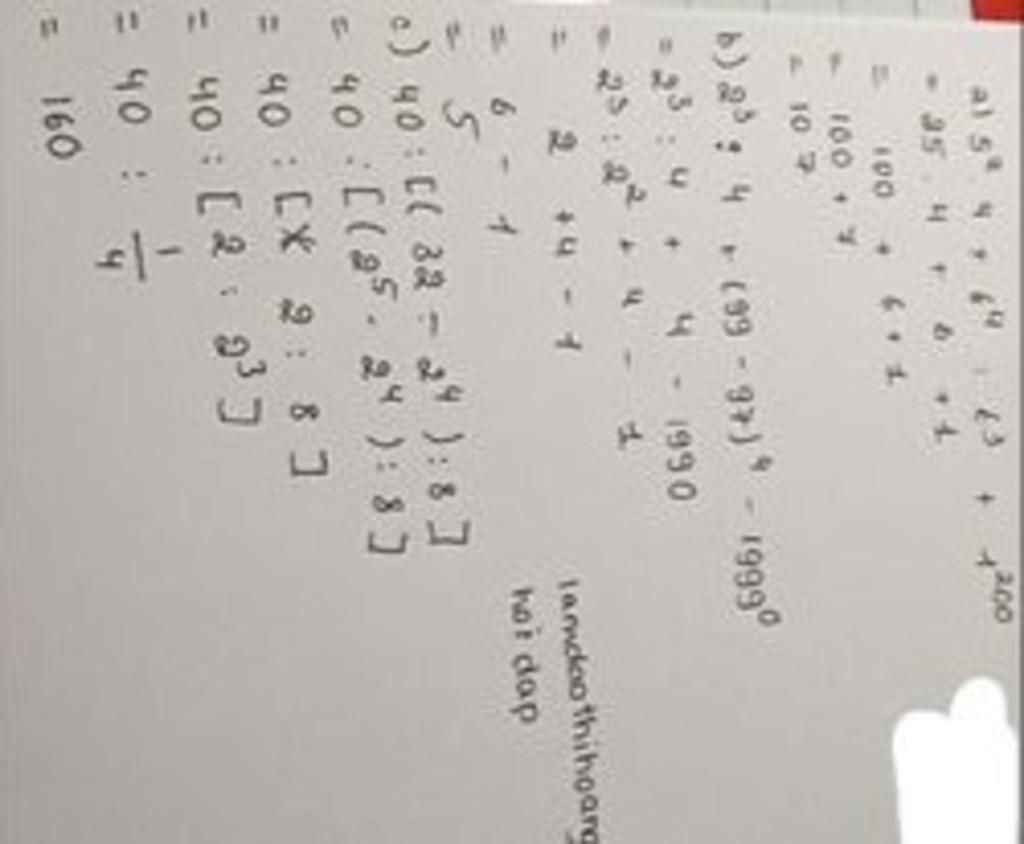 a) 5² . 4 + 6⁴ : 6³ + 1²⁰⁰
= 25 . 4 + 6 + 1
= 100 + 6 + 1
= 100 + 7
= 107
b) 2³ : 4 + (99 - 97)⁴ - 1999⁰
= 2³ : 4 + 4 - 1990
= 2³ : 2² + 4 - 1
= 2 + 4 - 1
= 6 - 1
= 5
c) 40 : [( 32 - 2⁴ ) : 8 ]
= 40 : [( 2⁵ . 2⁴ ) : 8 ]
= 40 : [ 2 : 8 ]
= 40 : [ 2 : 2³ ]
= 40 : 1/4
= 160
lamdaothihoang
hoi dap